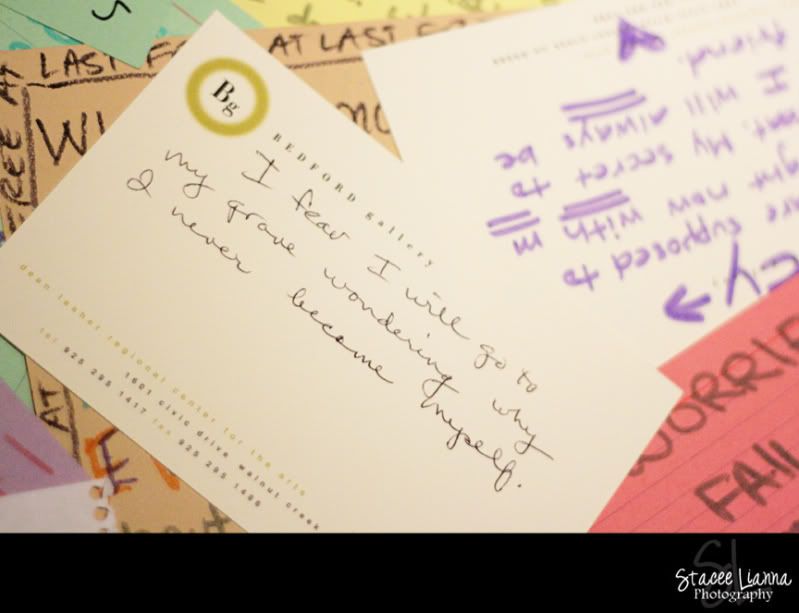 FREE AT LAST
AT LAST
Bg
BEDFORD gallery
I fear I will go to
my grave wondering why
I never become myself.
dean lesher regional center for the arts
1601 civic drive walnut creek
tel 925 295 1417 fax 925 295 1486
supposed to
now with m
My secret to
I will always be
friend.
WORRIE
FAIL
Stacee Lianna
Photography